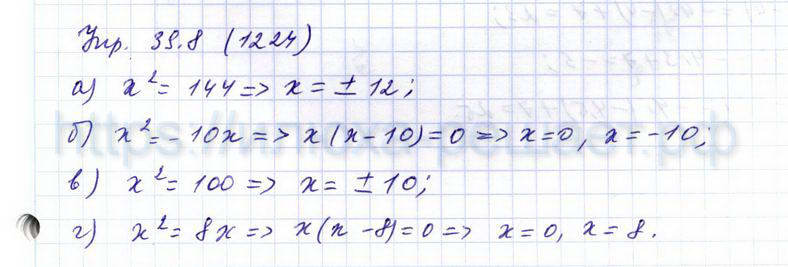 Упр. 39.8 (1224)
а) x² = 144 => x = ± 12;
б) x² = - 10x => x(x-10)=0 => x=0, x=-10;
в) x² = 100 => x = ± 10;
г) x² = 8x => x(x-8)=0 => x=0, x=8.